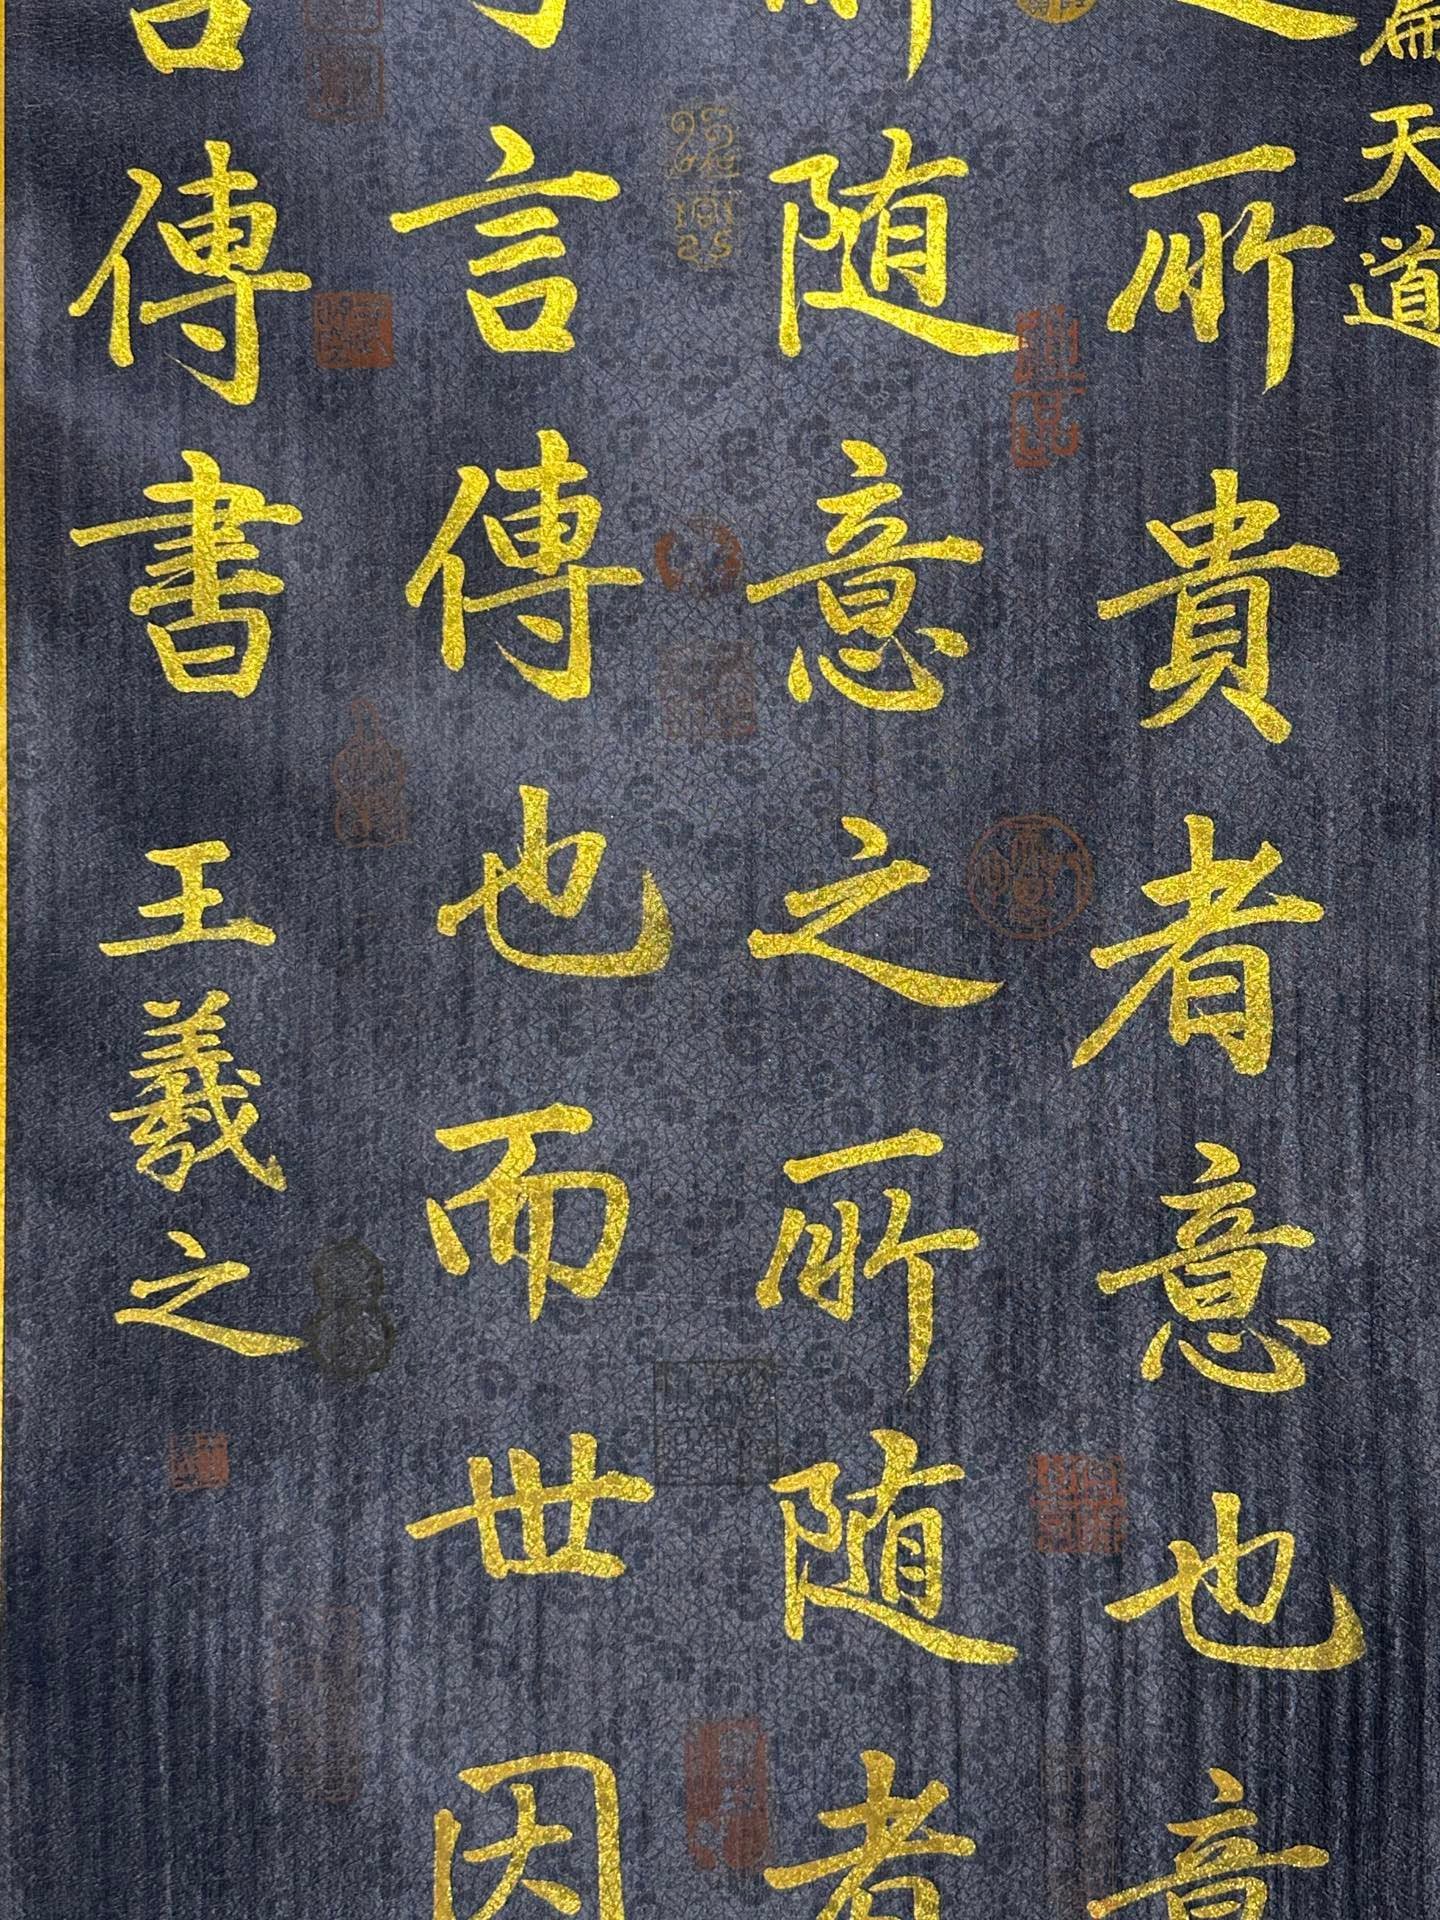 天道
所貴者意也意
随意之所随者
言傳也而世因
傳書
王羲之